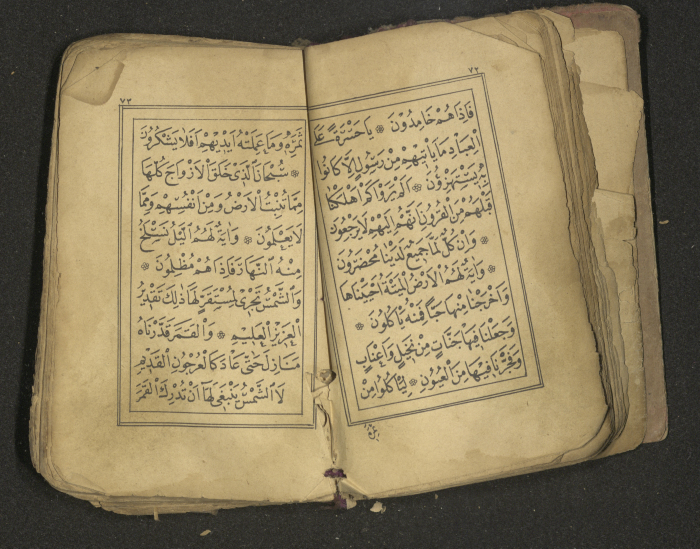 ٧٢
فَاِذَا هُمْ خَامِدُوْنَ ❋ يَا حَسْرَةً عَلَى
الْعِبَادِ مَا يَاْتِيهِمْ مِنْ رَسُوْلٍ اِلَّا كَانُوا
بِهِ يَسْتَهْزِؤُنَ ❋ اَلَمْ يَرَوْا كَمْ اَهْلَكْنَا
قَبْلَهُمْ مِنَ الْقُرُونِ اَنَّهُمْ اِلَيْهِمْ لَا يَرْجِعُونَ
❋ وَاِنْ كُلٌّ لَمَّا جَمِيعٌ لَدَيْنَا مُحْضَرُونَ
❋ وَاٰيَةٌ لَهُمُ الْاَرْضُ الْمَيْتَةُ اَحْيَيْنَاهَا
وَاَخْرَجْنَا مِنْهَا حَبًّا فَمِنْهُ يَأْكُلُونَ ❋
وَجَعَلْنَا فِيهَا جَنَّاتٍ مِنْ نَخِيلٍ وَاَعْنَابٍ
وَفَجَّرْنَا فِيهَا مِنَ الْعُيُونِ ❋ لِيَأْكُلُوا مِنْ
ثمره
٧٣
ثَمَرِهِ وَمَا عَمِلَتْهُ اَيْدِيهِمْ اَفَلَا يَشْكُرُونَ
❋ سُبْحَانَ الَّذِي خَلَقَ الْاَزْوَاجَ كُلَّهَا
مِمَّا تُنْبِتُ الْاَرْضُ وَمِنْ اَنْفُسِهِمْ وَمِمَّا
لَا يَعْلَمُونَ ❋ وَاٰيَةٌ لَهُمُ الَّيْلُ نَسْلَخُ
مِنْهُ النَّهَارَ فَاِذَا هُمْ مُظْلِمُونَ ❋
وَالشَّمْسُ تَجْرِي لِمُسْتَقَرٍّ لَهَا ذٰلِكَ تَقْدِيرُ
الْعَزِيزِ الْعَلِيمِ ❋ وَالْقَمَرَ قَدَّرْنَاهُ
مَنَازِلَ حَتَّى عَادَ كَالْعُرْجُونِ الْقَدِيمِ
لَا الشَّمْسُ يَنْبَغِي لَهَا اَنْ تُدْرِكَ الْقَمَرَ